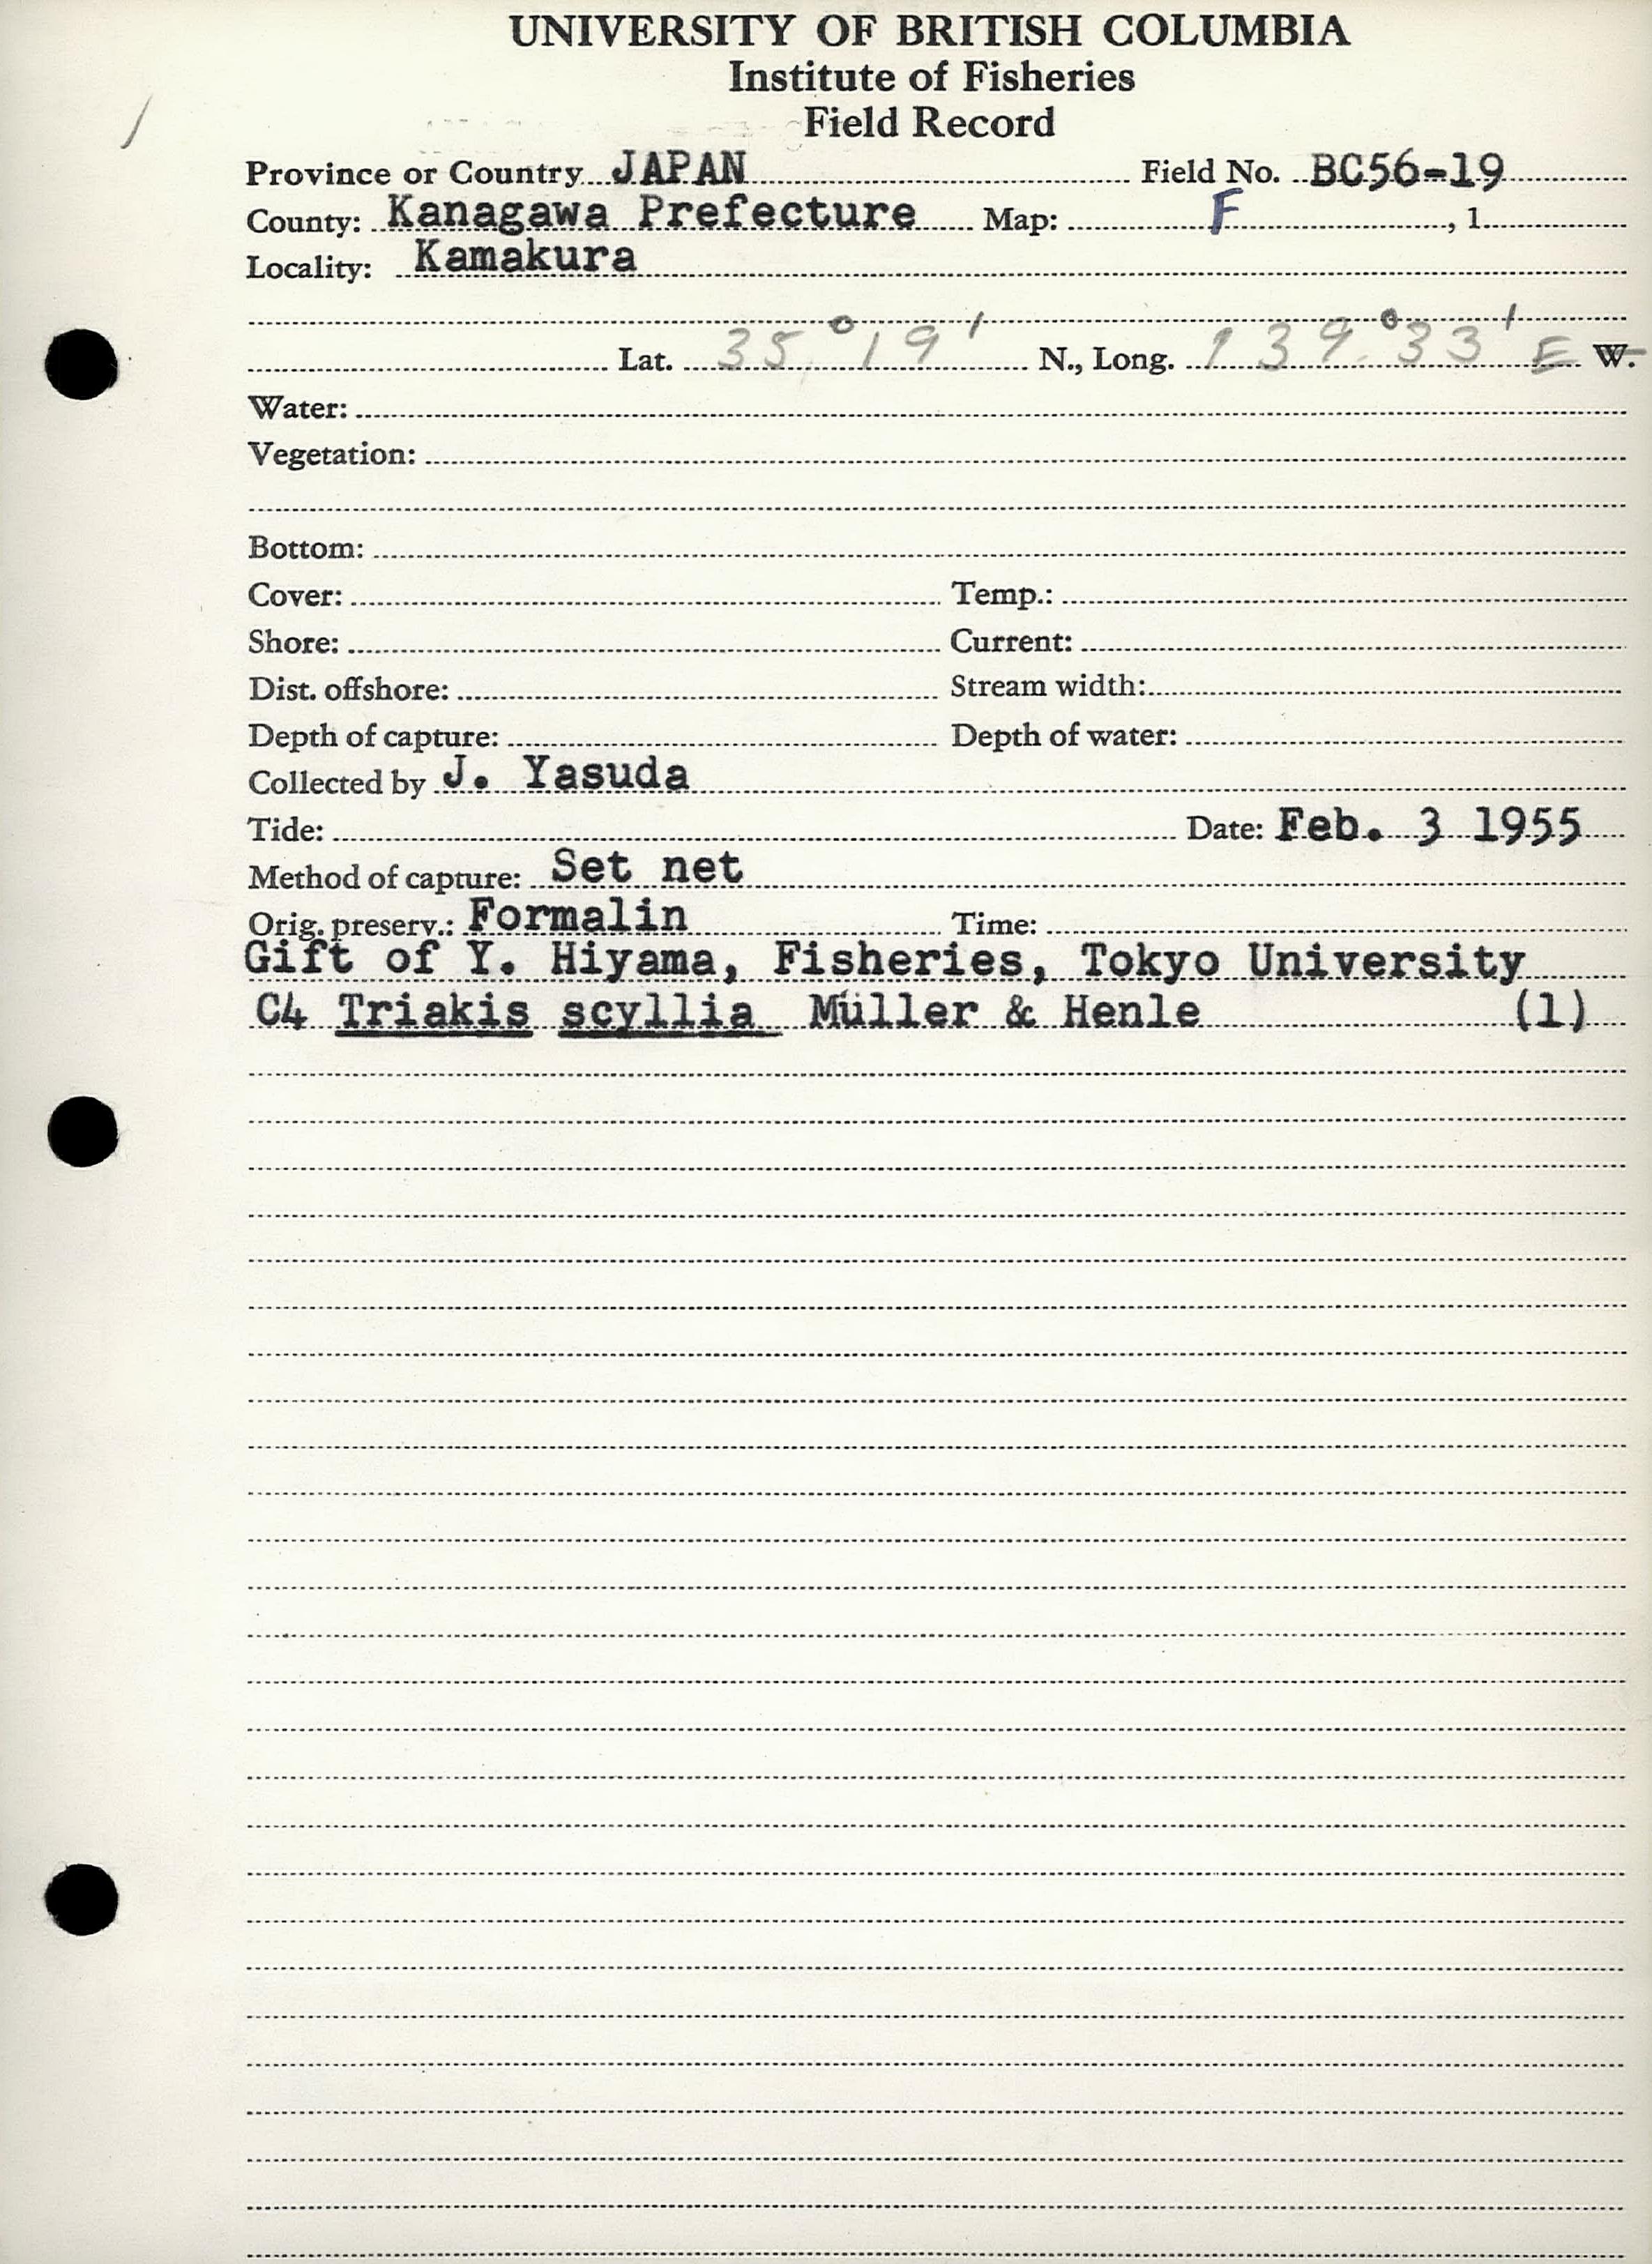 UNIVERSITY OF BRITISH COLUMBIA
Institute of Fisheries
Field Record
/
Province or Country JAPAN Field No. BC56-19
County: Kanagawa Prefecture Map: F , 1
Locality: Kamakura
Lat. 35°19' N., Long. 139°33' E W.
Water:
Vegetation:
Bottom:
Cover: Temp.:
Shore: Current:
Dist. offshore: Stream width:
Depth of capture: Depth of water:
Collected by J. Yasuda
Tide: Date: Feb. 3 1955
Method of capture: Set net
Orig. preserv.: Formalin Time:
Gift of Y. Hiyama, Fisheries, Tokyo University
C4 Triakis scyllia Müller & Henle (1)